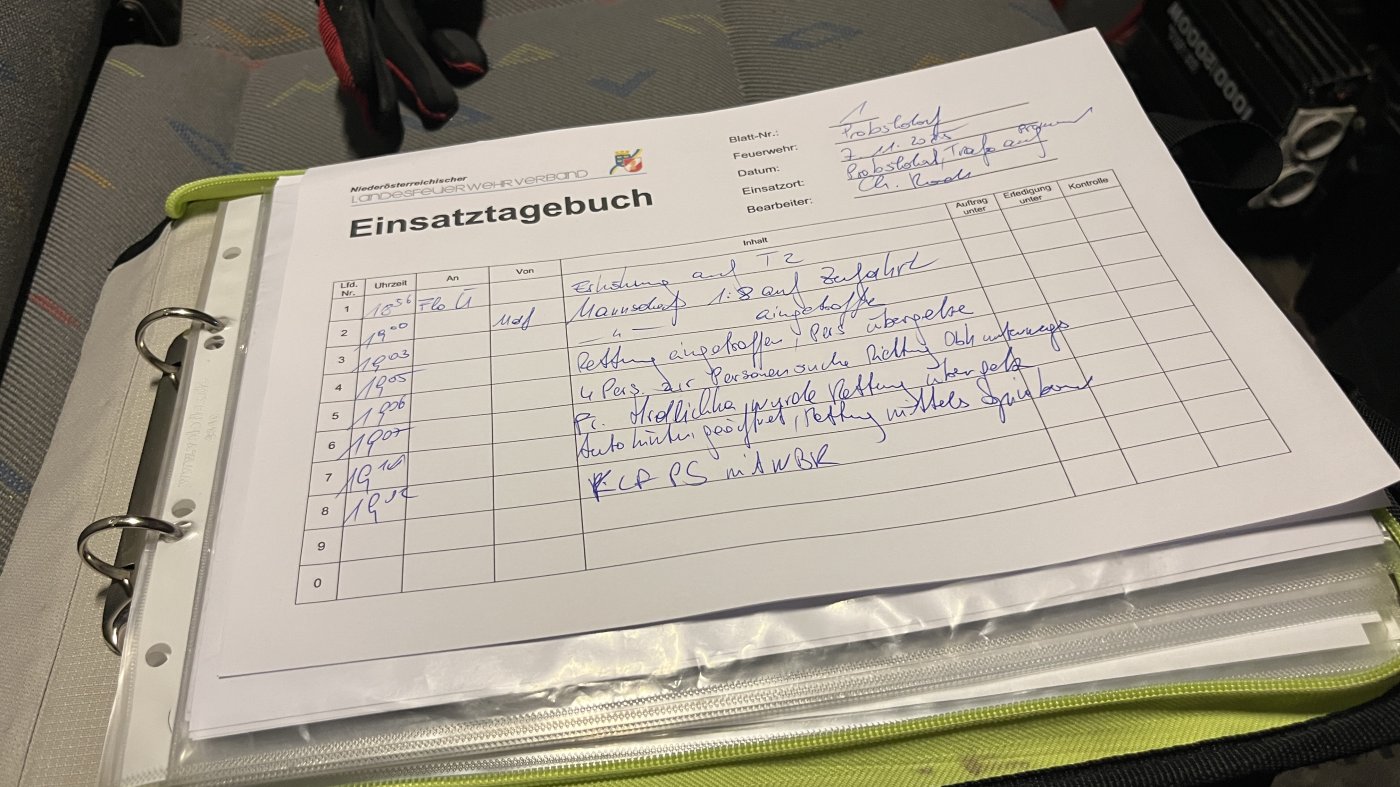 Niederösterreichischer
LANDESFEUERWEHRVERBAND
Einsatztagebuch
Blatt-Nr.: 1
Feuerwehr: Probstdorf
Datum: 7.11.2025
Einsatzort: Probstdorf, Trafo auf
Bearbeiter: Ch.
Lfd. Nr. Uhrzeit An Von Inhalt Auftrag unter Erledigung unter Kontrolle
1 18 56 Flo Erhöhung auf T2
2 19 00 Mdf Mannsdorf 1:8 auf Zufahrt
3 19 03 -"- eingetroffen
4 19 05 Rettung eingetroffen, Pers übergeben
5 19 06 4 Pers zur Personensuche Richtung unterwegs
6 19 07 wurde Rettung übergeben
7 19 Auto hinten geöffnet, Rettung mittels
8 19 12 PS mit WBK
9
0
1000/800W